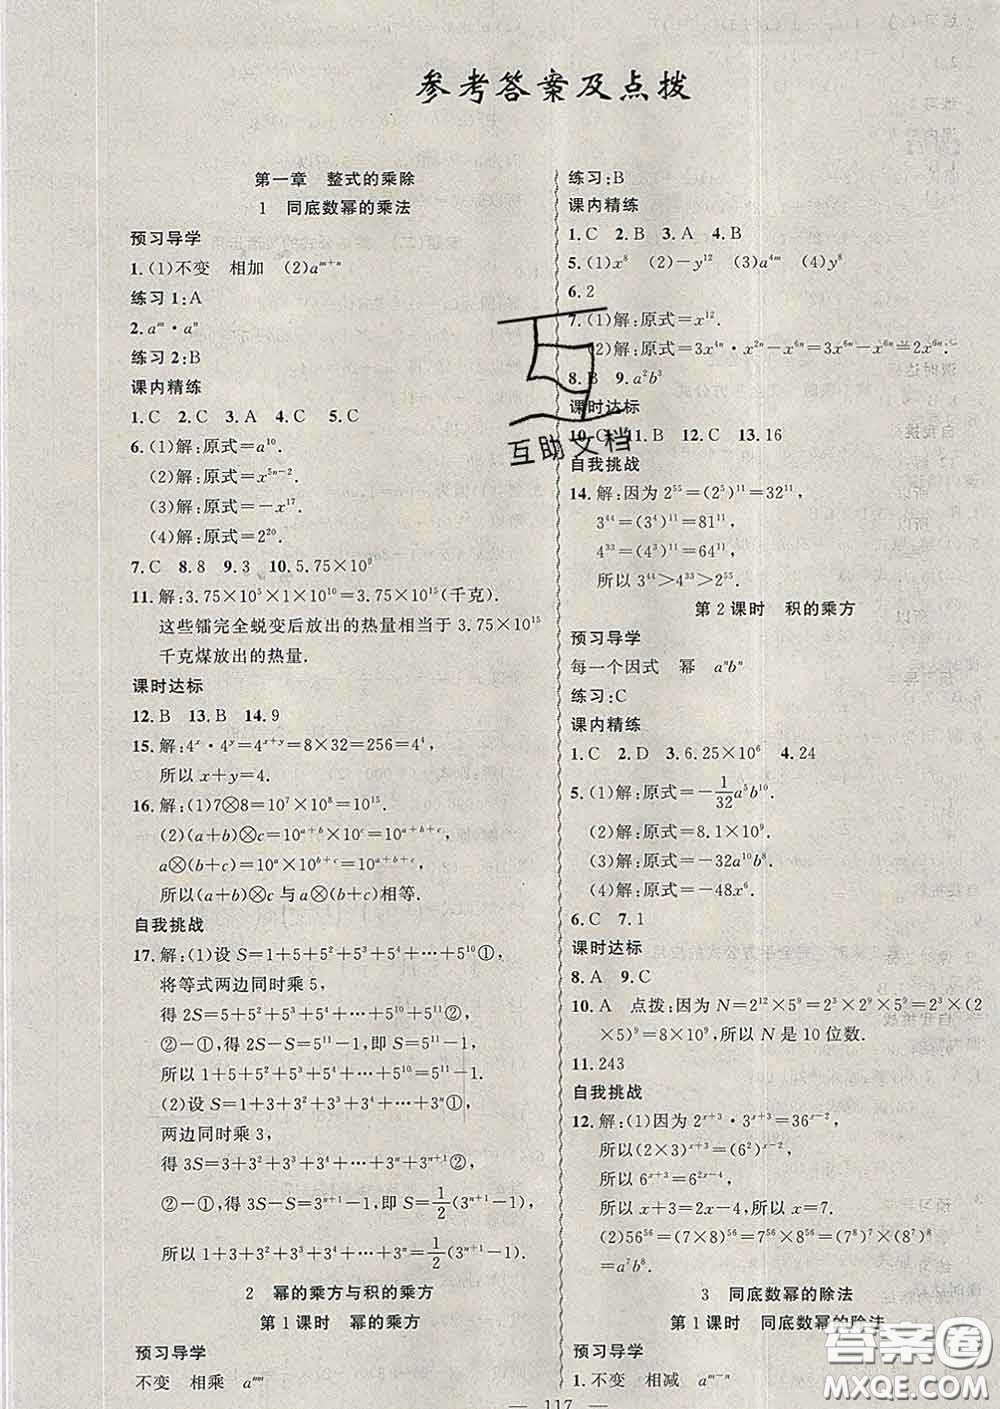 参考答案及点拨
第一章 整式的乘除
1 同底数幂的乘法
预习导学
1.(1)不变 相加 (2)aᵐ⁺ⁿ
练习1:A
2.aᵐ·aⁿ
练习2:B
课内精练
1.C 2.B 3.A 4.C 5.C
6.(1)解:原式=a¹⁰.
(2)解:原式=x⁵ⁿ⁻².
(3)解:原式=-x¹⁷.
(4)解:原式=2²⁰.
7.C 8.8 9.3 10.5.75×10⁹
11.解:3.75×10⁵×1×10¹⁰=3.75×10¹⁵(千克).
这些镭完全蜕变后放出的热量相当于3.75×10¹⁵
千克煤放出的热量.
课时达标
12.B 13.B 14.9
15.解:4ˣ·4ʸ=4ˣ⁺ʸ=8×32=256=4⁴,
所以x+y=4.
16.解:(1)7⊗8=10⁷×10⁸=10¹⁵.
(2)(a+b)⊗c=10ᵃ⁺ᵇ×10ᶜ=10ᵃ⁺ᵇ⁺ᶜ,
a⊗(b+c)=10ᵃ×10ᵇ⁺ᶜ=10ᵃ⁺ᵇ⁺ᶜ,
所以(a+b)⊗c与a⊗(b+c)相等.
自我挑战
17.解:(1)设S=1+5+5²+5³+5⁴+…+5¹⁰①,
将等式两边同时乘5,
得2S=5+5²+5³+5⁴+…+5¹⁰+5¹¹②,
②-①,得2S-S=5¹¹-1,即S=5¹¹-1,
所以1+5+5²+5³+5⁴+…+5¹⁰=5¹¹-1.
(2)设S=1+3+3²+3³+3⁴+…+3ⁿ①,
两边同时乘3,
得3S=3+3²+3³+3⁴+…+3ⁿ⁺¹②,
②-①,得3S-S=3ⁿ⁺¹-1,即S=1/2(3ⁿ⁺¹-1),
所以1+3+3²+3³+3⁴+…+3ⁿ=1/2(3ⁿ⁺¹-1).
2 幂的乘方与积的乘方
第1课时 幂的乘方
预习导学
不变 相乘 aᵐⁿ
练习:B
课内精练
1.C 2.B 3.A 4.B
5.(1)x⁸ (2)-y¹² (3)a⁴ᵐ (4)y⁸
6.2
7.(1)解:原式=x¹².
(2)解:原式=3x⁴ⁿ·x²ⁿ-x⁶ⁿ=3x⁶ⁿ-x⁶ⁿ=2x⁶ⁿ.
8.B 9.a²b³
课时达标
10.C 11.B 12.C 13.16
自我挑战
14.解:因为2⁵⁵=(2⁵)¹¹=32¹¹,
3⁴⁴=(3⁴)¹¹=81¹¹,
4³³=(4³)¹¹=64¹¹,
所以3⁴⁴>4³³>2⁵⁵.
第2课时 积的乘方
预习导学
每一个因式 幂 aⁿbⁿ
练习:C
课内精练
1.C 2.D 3.6.25×10⁶ 4.24
5.(1)解:原式=-1/32a⁵b¹⁰.
(2)解:原式=8.1×10⁹.
(3)解:原式=-32a¹⁰b⁸.
(4)解:原式=-48x⁶.
6.C 7.1
课时达标
8.A 9.C
10.A 点拨:因为N=2¹²×5⁹=2³×2⁹×5⁹=2³×(2
×5)⁹=8×10⁹,所以N是10位数.
11.243
自我挑战
12.解:(1)因为2ˣ⁺³·3ˣ⁺³=36ˣ⁻²,
所以(2×3)ˣ⁺³=(6²)ˣ⁻²,
所以6ˣ⁺³=6²ˣ⁻⁴,
所以x+3=2x-4,所以x=7.
(2)56⁵⁶=(7×8)⁵⁶=7⁵⁶×8⁵⁶=(7⁸)⁷×(8⁷)⁸
=a⁷b⁸.
3 同底数幂的除法
第1课时 同底数幂的除法
预习导学
1.不变 相减 aᵐ⁻ⁿ
— 117 —
互助文档
答案圈
MXQE.COM